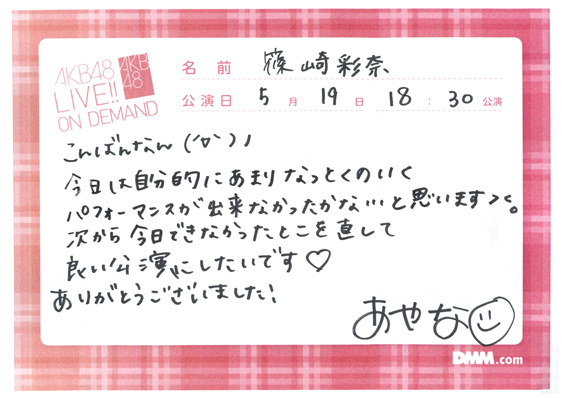 AKB48
LIVE!!
ON DEMAND
AKB
48
名前 篠崎彩奈
公演日 5月19日 18:30公演
こんばんなん('ω')ノ
今日は自分的にあまりなっとくのいく
パフォーマンスが出来なかったかな…と思います><。
次から今日できなかったとこを直して
良い公演にしたいです♡
ありがとうございました!
あやな☺
DMM.com